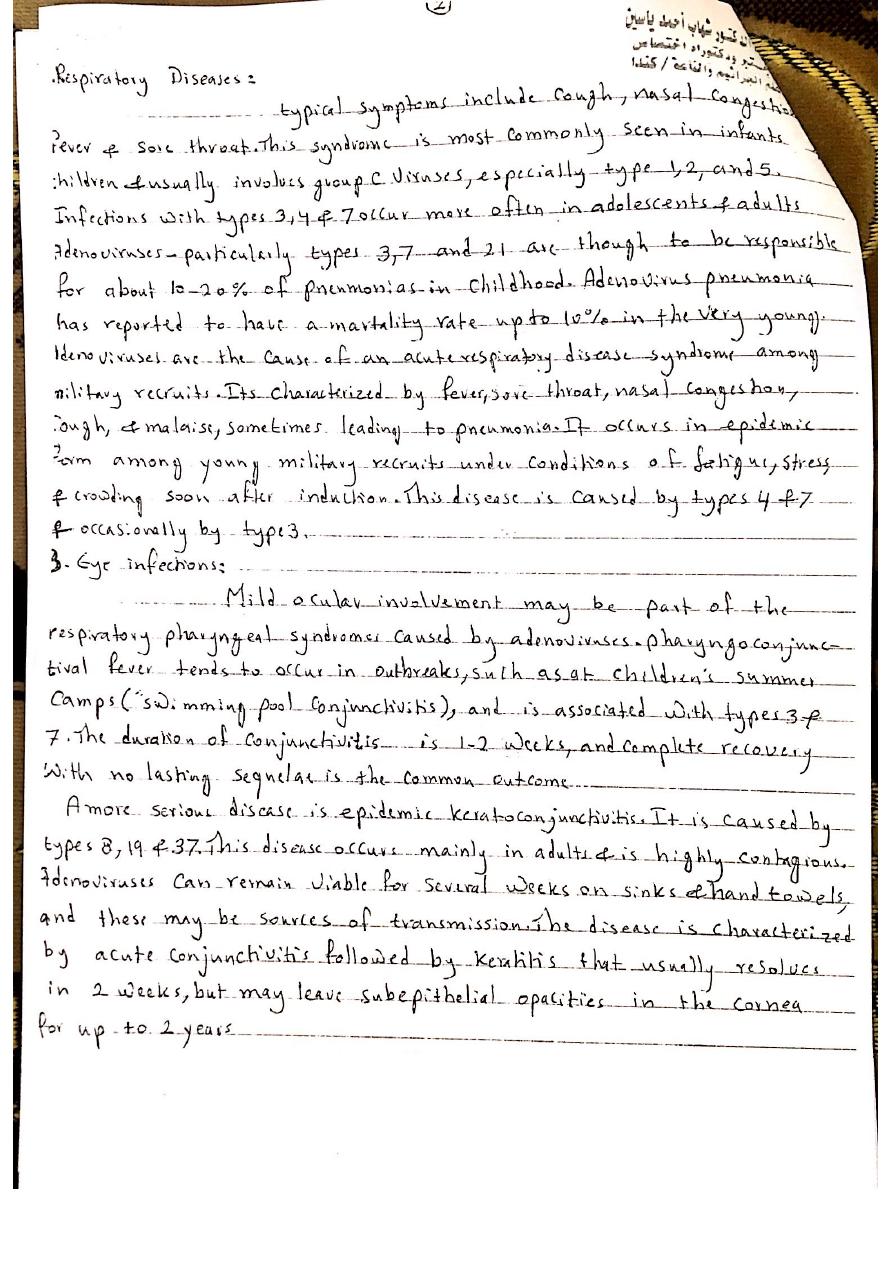 الدكتور شهاب أحمد ياسين
ودكتوراه اختصاص
الجراثيم والمناعة / كندا
.Respiratory Diseases:
typical symptoms include Cough, nasal Congestio
Fever & sore throat. This syndrome is most commonly seen in infants
hildren & usually involves group C Viruses, especially type 1, 2, and 5.
Infections with types 3, 4 & 7 occur more often in adolescents & adults
Adenoviruses - particularly types 3,7 and 21 are though to be responsible
for about 10-20% of pneumonias in childhood. Adenovirus pneumonia
has reported to have a martality rate up to 10% in the very young.
Adenoviruses are the cause of an acute respiratory disease syndrome among
military recruits. Its characterized by fever, sore throat, nasal congestion,
cough, & malaise, sometimes leading to pneumonia. It occurs in epidemic
Form among young military recruits under conditions of fatigue, stress,
& crowding soon after induction. This disease is caused by types 4 & 7
& occasionally by type 3.
3. Eye infections:
Mild ocular involvement may be part of the
respiratory pharyngeal syndromes caused by adenoviruses. pharyngoconjunc-
tival fever tends to occur in outbreaks, such as at children's summer
Camps ("swimming pool conjunctivitis), and is associated with types 3 &
7. The duration of conjunctivitis is 1-2 weeks, and complete recovery
With no lasting sequelae is the common outcome
A more serious disease is epidemic keratoconjunctivitis. It is caused by
types 8, 19 & 37. This disease occurs mainly in adults & is highly contagious.
Adenoviruses Can remain viable for several weeks on sinks & hand towels,
and these may be sources of transmission. The disease is characterized
by acute conjunctivitis followed by keratitis that usually resolves
in 2 weeks, but may leave subepithelial opacities in the cornea
for up to 2 years